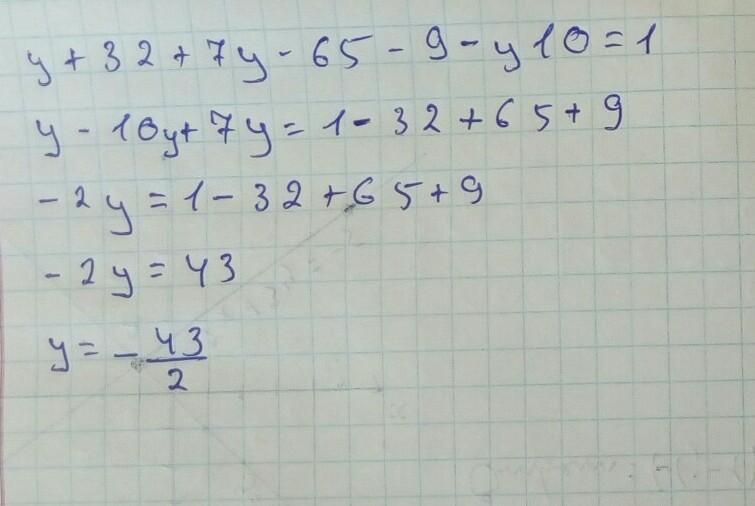 y + 32 + 7y - 65 - 9 - y10 = 1
y - 10y + 7y = 1 - 32 + 65 + 9
- 2y = 1 - 32 + 65 + 9
- 2y = 43
y = - 43/2